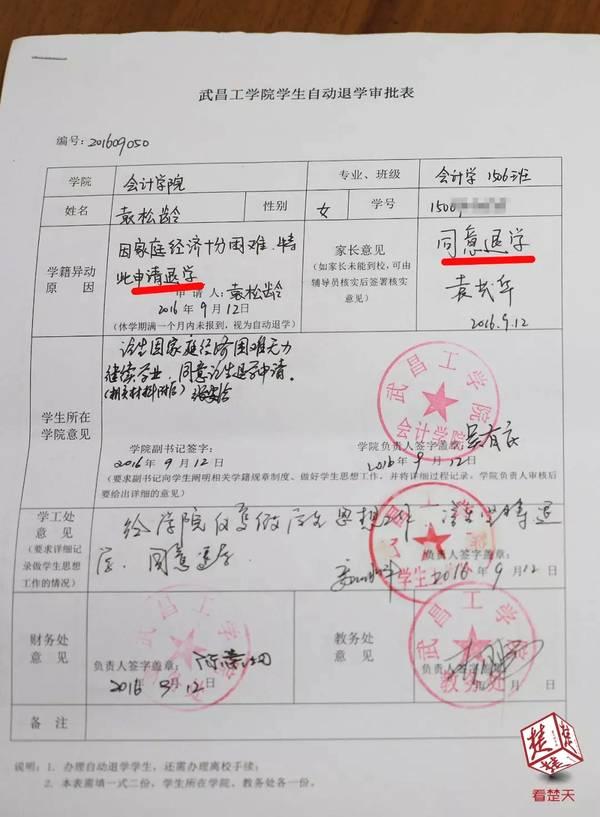 武昌工学院学生自动退学审批表
编号:201609050
学院 会计学院 专业、班级 会计学1506班
姓名 袁松龄 性别 女 学号 1500
学籍异动原因
因家庭经济十分困难,特
此申请退学
申请人:袁松龄
2016年9月12日
(休学期满一个月内未报到,视为自动退学)
家长意见
(如家长未能到校,可由
辅导员核实后签署核实
意见)
同意退学
2016.9.12
学生所在
学院意见
该生因家庭经济困难无力
继续学业,同意该生退学申请。
学院副书记签字:
2016年9月12日
学院负责人签字盖章:
2016年9月12日
武昌工学院
会计学院
(要求副书记向学生阐明相关学籍规章制度、做好学生思想工作,并将详细过程记录。学院负责人审核后
要给出详细的意见)
学工处
意见
(要求详细记
录做学生思想
工作的情况)
经学院反复做学生思想工作,
学,同意退学
负责人签字盖章:
2016年9月12日
财务处
意见
负责人签字盖章:
2016 9 12
武昌工学
教务处
意见
负责人签字盖章:
年 月 日
武昌工学院
教务处
备注
说明:1. 办理自动退学学生,还需办理离校手续;
2. 本表需填一式二份,学生所在学院、教务处各一份。
看楚天